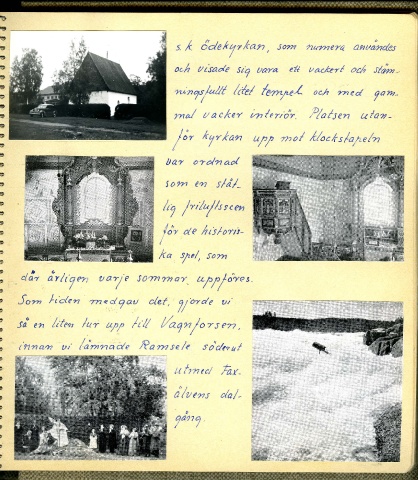 s.k ödekyrkan, som numera användes
och visade sig vara ett vackert och stäm-
ningsfullt litet tempel och med gam-
mal vacker interiör. Platsen utan-
för kyrkan upp mot klockstapeln
var ordnad
som en ståt-
lig friluftsscen
för de histori-
ska spel, som
där årligen varje sommar uppföres.
Som tiden medgav det, gjorde vi
så en liten tur upp till Vagnforsen,
innan vi lämnade Ramsele söderut
utmed Fax-
älvens dal-
gång.